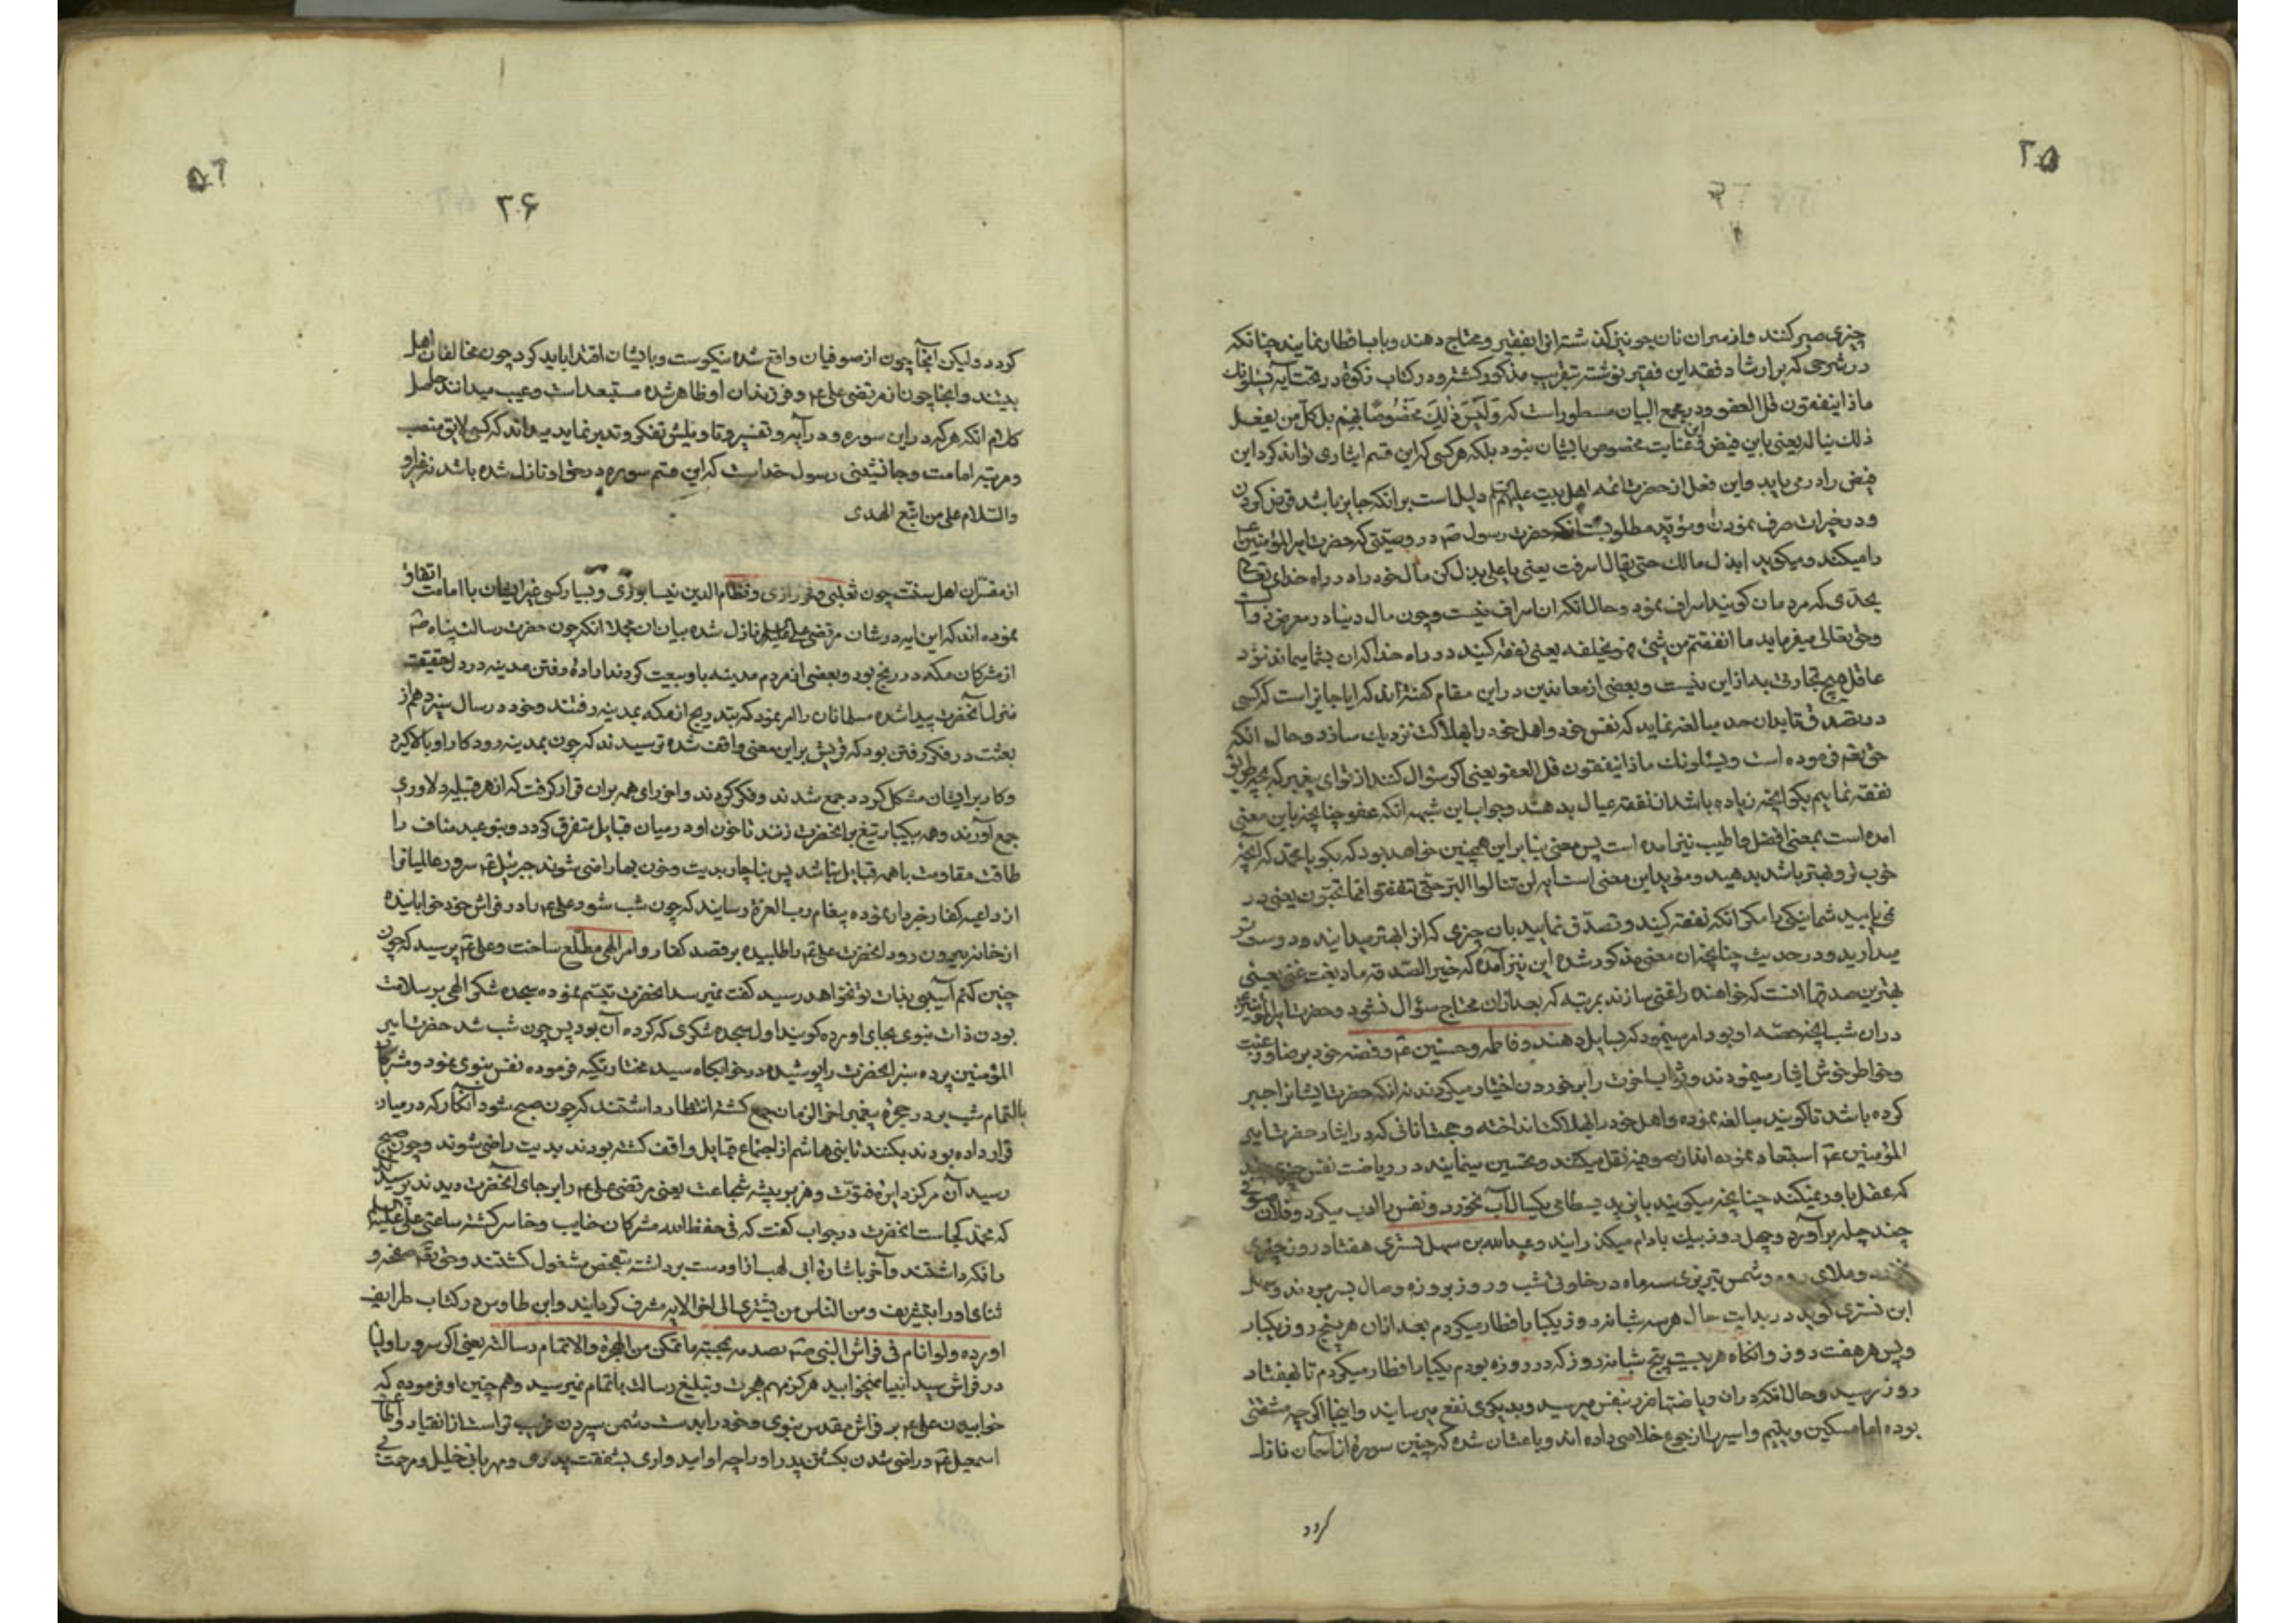 ۲۵
چیزی صبر کنند و از سر آن نان جوینی گذشته آنرا بفقیر و محتاج دهند و بآب افطار نمایند چنانکه
در شرحی که بر ارشاد فقه این فقیر نوشته بتقریب مذکور گشته و در کتاب زکوة در تحت آیه یسئلونک
ماذا ینفقون قل العفو و در مجمع البیان مسطور است که و لیس ذلک مخصوصا بهم بل کل من یفعل
ذلک یناله یعنی این فیض و عنایت مخصوص بایشان نبود بلکه هر کسی که این قسم ایثاری تواند کرد این
فیض را درمی یابد و این فعل از حضرت ائمه اهل بیت علیهم دلیل است بر آنکه جایز باشد قرض کردن
و در خیرات صرف نمودن و مؤید مطلوبست آنکه حضرت رسول ص در وصیتی که حضرت امیرالمؤمنین ع
را میکند و میگوید ابذل مالک حتی یقال اسرفت یعنی یا علی بذل کن مال خود را در راه خدای تعالی
بحدی که مردمان گویند اسراف نمود و حال آنکه آن اسراف نیست و چون مال دنیا در معرض فنا
وحق تعالی میفرماید ما انفقتم من شئ فهو یخلفه یعنی نفقه کنید در راه خدا که آن بشما میماند نزد
عاقل هیچ تجارتی به از این نیست و بعضی از معاندین در این مقام گفته اند که ایا جایز است که کسی
در تصدق تا بدان حد مبالغه نماید که نفس خود و اهل خود را بهلاکت نزدیک سازد و حال آنکه
حق تعم فرموده است و یسئلونک ماذا ینفقون قل العفو یعنی اگر سؤال کنند از تو ای پیغمبر که بچه طریق
نفقه نماییم بگو آنچه زیاده باشد از نفقه عیال بدهند و جواب این شبهه آنکه عفو چنانچه باین معنی
امده است بمعنی افضل و اطیب نیز امده است پس معنی بنا بر این همچنین خواهد بود که بگو یا محمد که آنچه
خوب تر و بهتر باشد بدهید و مؤید این معنی است آیه لن تنالوا البر حتی تنفقوا مما تحبون یعنی در
نمی یابید شما نیکی را مگر آنکه نفقه کنید و تصدق نمایید بان چیزی که آنرا بهتر میدانید و دوست تر
میدارید و در حدیث چنانچه آن معنی مذکور شده این نیز آمده که خیر الصدقه ما ابقت غنی یعنی
بهترین صدقها آنست که خواهنده را غنی سازند بمرتبه که بعد از آن محتاج سؤال نشود و حضرت امیرالمؤمنین ع
در آن شب آنچه حصه او بود امر مینمود که بسایل دهند و فاطمه و حسنین ع و فضه خود برضا و رغبت
و خواطر خوش ایثار مینمودند و ثواب اخرت را بر خوردن اختیار میکردند نه آنکه حضرت ایشان را جبر
کرده باشد تا گویند مبالغه نموده و اهل خود را بهلاکت انداخته و جمعی آنانی که در ایثار حضرت امیر
المؤمنین ع استبعاد نموده اند از صوفیه نقل میکنند و تحسین مینمایند در ریاضت نفس چیزی چند
که عقل باور نمیکند چنانچه میگویند بایزید بسطامی یکسال آب نخورد و نفس را ادب میکرد و فلان صوفی
چند چله برآورد و چهل روز بیک بادام میگذرانید و عبدالله بن سهل تستری هفتاد روز چیزی
و ملای روم و شمس تبریزی سه ماه در خلوتی شب و روز بروزه وصال بسر بردند و
ابن تستری گوید در بدایت حال هر سه شبانه روز یکبار افطار میکردم بعد از آن هر پنج روز یکبار
و پس هر هفت روز و آنگاه هر بیست و پنج شبانه روز که در روزه بودم یکبار افطار میکردم تا بهفتاد
روز رسید و حال آنکه در آن ریاضتها ضرر بنفس میرسید و بدیگری نفع میرسانید و اینجا اگر چه مشقتی
بوده اما مسکین و یتیم و اسیر را از جوع خلاصی داده اند و باعث آن شده که چنین سوره از آسمان نازل
گردد
۵۲
۲۶
گردد ولیکن آنجا چون از صوفیان واقع شده نیکوست و بایشان اقتدا باید کرد چون مخالفان اهل
بیتند و اینجا چون از مرتضی علی ع و فرزندان او ظاهر شده مستبعد است و عیب میدانند حاصل
کلام آنکه هر که در این سوره و در آیه و تفسیر و تاویلش تفکر و تدبر نماید میداند که کسی لایق منصب
و مرتبه امامت و جانشینی رسول خداست که این قسم سوره در حق او نازل شده باشد نه غیر او
والسلام علی من اتبع الهدی
از مفسران اهل سنت چون ثعلبی و فخر رازی و نظام الدین نیسابوری و بسیار کسی غیر ایشان با امامت اتفاق
نموده اند که این ایه در شان مرتضی علی نازل شده بیان آن مجملا آنکه چون حضرت رسالت پناه ص
از مشرکان مکه در رنج بود و بعضی از مردم مدینه باو بیعت کردند اراده رفتن مدینه در دل حقیقت
منزل آنحضرت پیدا شده مسلمانان را امر نمود که بتدریج از مکه بمدینه رفتند و خود در سال سیزدهم از
بعثت در فکر رفتن بود که قریش بر این معنی واقف شده ترسیدند که چون بمدینه رود کار او بالا گیرد
و کار بر ایشان مشکل گردد جمع شدند و فکر کردند و اخر رای همه بر آن قرار گرفت که از هر قبیله دلاوری
جمع آورند و همه بیکبار تیغ بر آنحضرت زنند تا خون او در میان قبایل متفرق گردد و بنو عبد مناف را
طاقت مقاومت با همه قبایل نباشد پس بناچار بدیت و خون بها راضی شوند جبرئیل ع سرور عالمیان را
از داعیه کفار خبردار نموده پیغام رب العزة رسانید که چون شب شود علی ع را در فراش خود خوابانیده
از خانه بیرون رود آنحضرت علی ع را طلبیده بر قصد کفار و امر الهی مطلع ساخت و علی ع پرسید که چون
چنین کنم آسیبی بذات تو نخواهد رسید گفت نمیرسد آنحضرت تبسم نموده سجده شکر الهی بر سلامت
بودن ذات نبوی بجای اورده گویند اول سجده شکری که کرده آن بود پس چون شب شد حضرت امیر
المؤمنین برده سبز آنحضرت را پوشیده در خوابگاه سید مختار تکیه فرموده نفس نبوی نمود و مشرکان
تمام شب بر در حجره پیغمبر اخر الزمان جمع گشته انتظار داشتند که چون صبح شود آنکار که در میان
قرار داده بودند بکنند تا بنی هاشم از اجتماع قبایل واقف گشته بودند بدیت راضی شوند و چون صبح
رسید آن مرکز دایره فتوت و هزبر بیشه شجاعت یعنی مرتضی علی ع را بر جای آنحضرت دیدند پرسیدند
که محمد کجاست آنحضرت در جواب گفت که فی حفظ الله مشرکان خایب و خاسر گشته ساعتی علی علیه السلم
را نگه داشتند و آخر باشاره ابی لهب از او دست برداشته بتفحص مشغول گشتند و حق تعم
ثنای او را بتشریف و من الناس من یشتری الی اخر الایه مشرف گردانید و ابن طاوس در کتاب طرایف
اورده و لو لا نام فی فراش النبی ص
در فراش سید انبیا نمیخوابید هرگز مهم هجرت و تبلیغ رسالت باتمام نمیرسید و هم چنین او فرموده که
خوابیدن علی ع بر فراش مقدس نبوی و خود را بدست دشمن سپردن غریب تر است از انقیاد و اطاعت
اسمعیل ع و راضی شدن بکشتن پدر او را چه او امیدواری بشفقت پدری و مهربانی خلیل و مرحمت